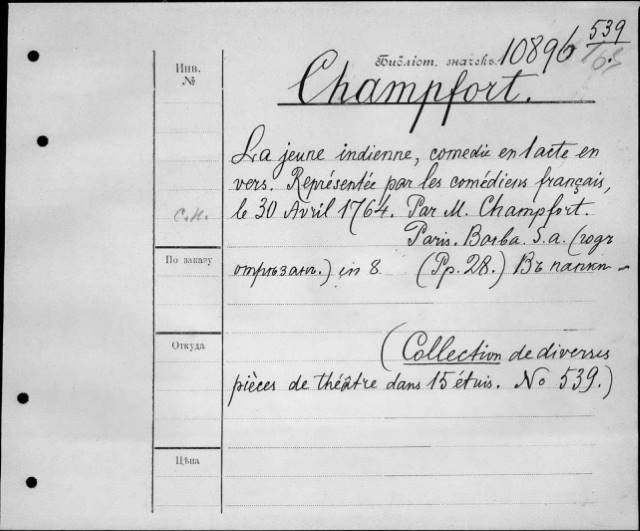 Инв.
№
Библіот. значекъ 10896 539
Champfort.
La jeune indienne, comedie en 1 acte en
vers. Représentée par les comédiens français,
le 30 Avril 1764. Par M. Champfort.
С.п.
Paris. Barba. S.a. (годъ
отрѣзанъ.) in 8. (Pp. 28.) Въ папки
По заказу
Откуда
(Collection de diverses
pièces de théâtre dans 15 étuis. No 539.)
Цѣна